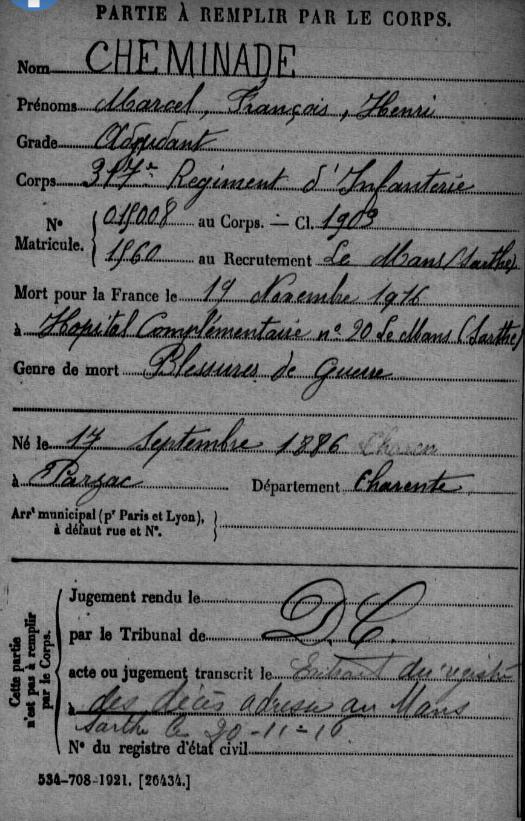 PARTIE À REMPLIR PAR LE CORPS.
Nom CHEMINADE
Prénoms Marcel, François, Henri
Grade Adjudant
Corps 317e Régiment d'Infanterie
N° Matricule. 015008 au Corps. — Cl. 1909
1560 au Recrutement Le Mans (Sarthe)
Mort pour la France le 19 Novembre 1916
à Hopital Complémentaire n° 20 Le Mans (Sarthe)
Genre de mort Blessures de Guerre
Né le 17 Septembre 1886
à Parzac Département Charente
Arrt municipal (pr Paris et Lyon),
à défaut rue et N°.
Cette partie n'est pas à remplir par le Corps.
Jugement rendu le
par le Tribunal de D.C.
acte ou jugement transcrit le Extrait du registre
à des décès adressé au Mans
Sarthe le 20-11-16
N° du registre d'état civil
534-708-1921. [26434.]